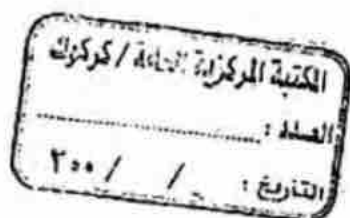 المكتبة المركزية العامة / كركوك
العدد : ....................
التاريخ :   /   / ٢٠٠